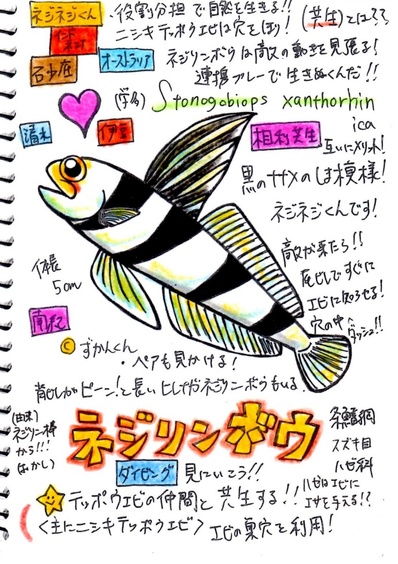 ネジネジくん
・役割分担で自然を生きる!!
(共生)とは??
ニシキテッポウエビは穴をほり!
ネジリンボウは敵の動きを見張る!
連携プレーで生きぬくんだ!!
石垣
オーストラリア
(学名) Stonogobiops xanthorhin
ica
清水
伊豆
相利共生
互いにメリット!
黒のナナメのしま模様!
ネジネジくんです!
敵が来たら!!
尾ビレですぐに
エビに知らせる!
穴の中へダッシュ!!
体長
5cm
© ずかんくん
・ペアも見かける!
背ビレがピーン!と長いヒレナガネジリンボウもいる。
(由来)
ネジリン棒
から!!!
(おかし)
ネジリンボウ
条鰭綱
スズキ目
ハゼ科
ダイビング 見にいこう!!
ハゼはエビに
エサを与える!?
テッポウエビの仲間と共生する!!
<主にニシキテッポウエビ> エビの巣穴を利用!